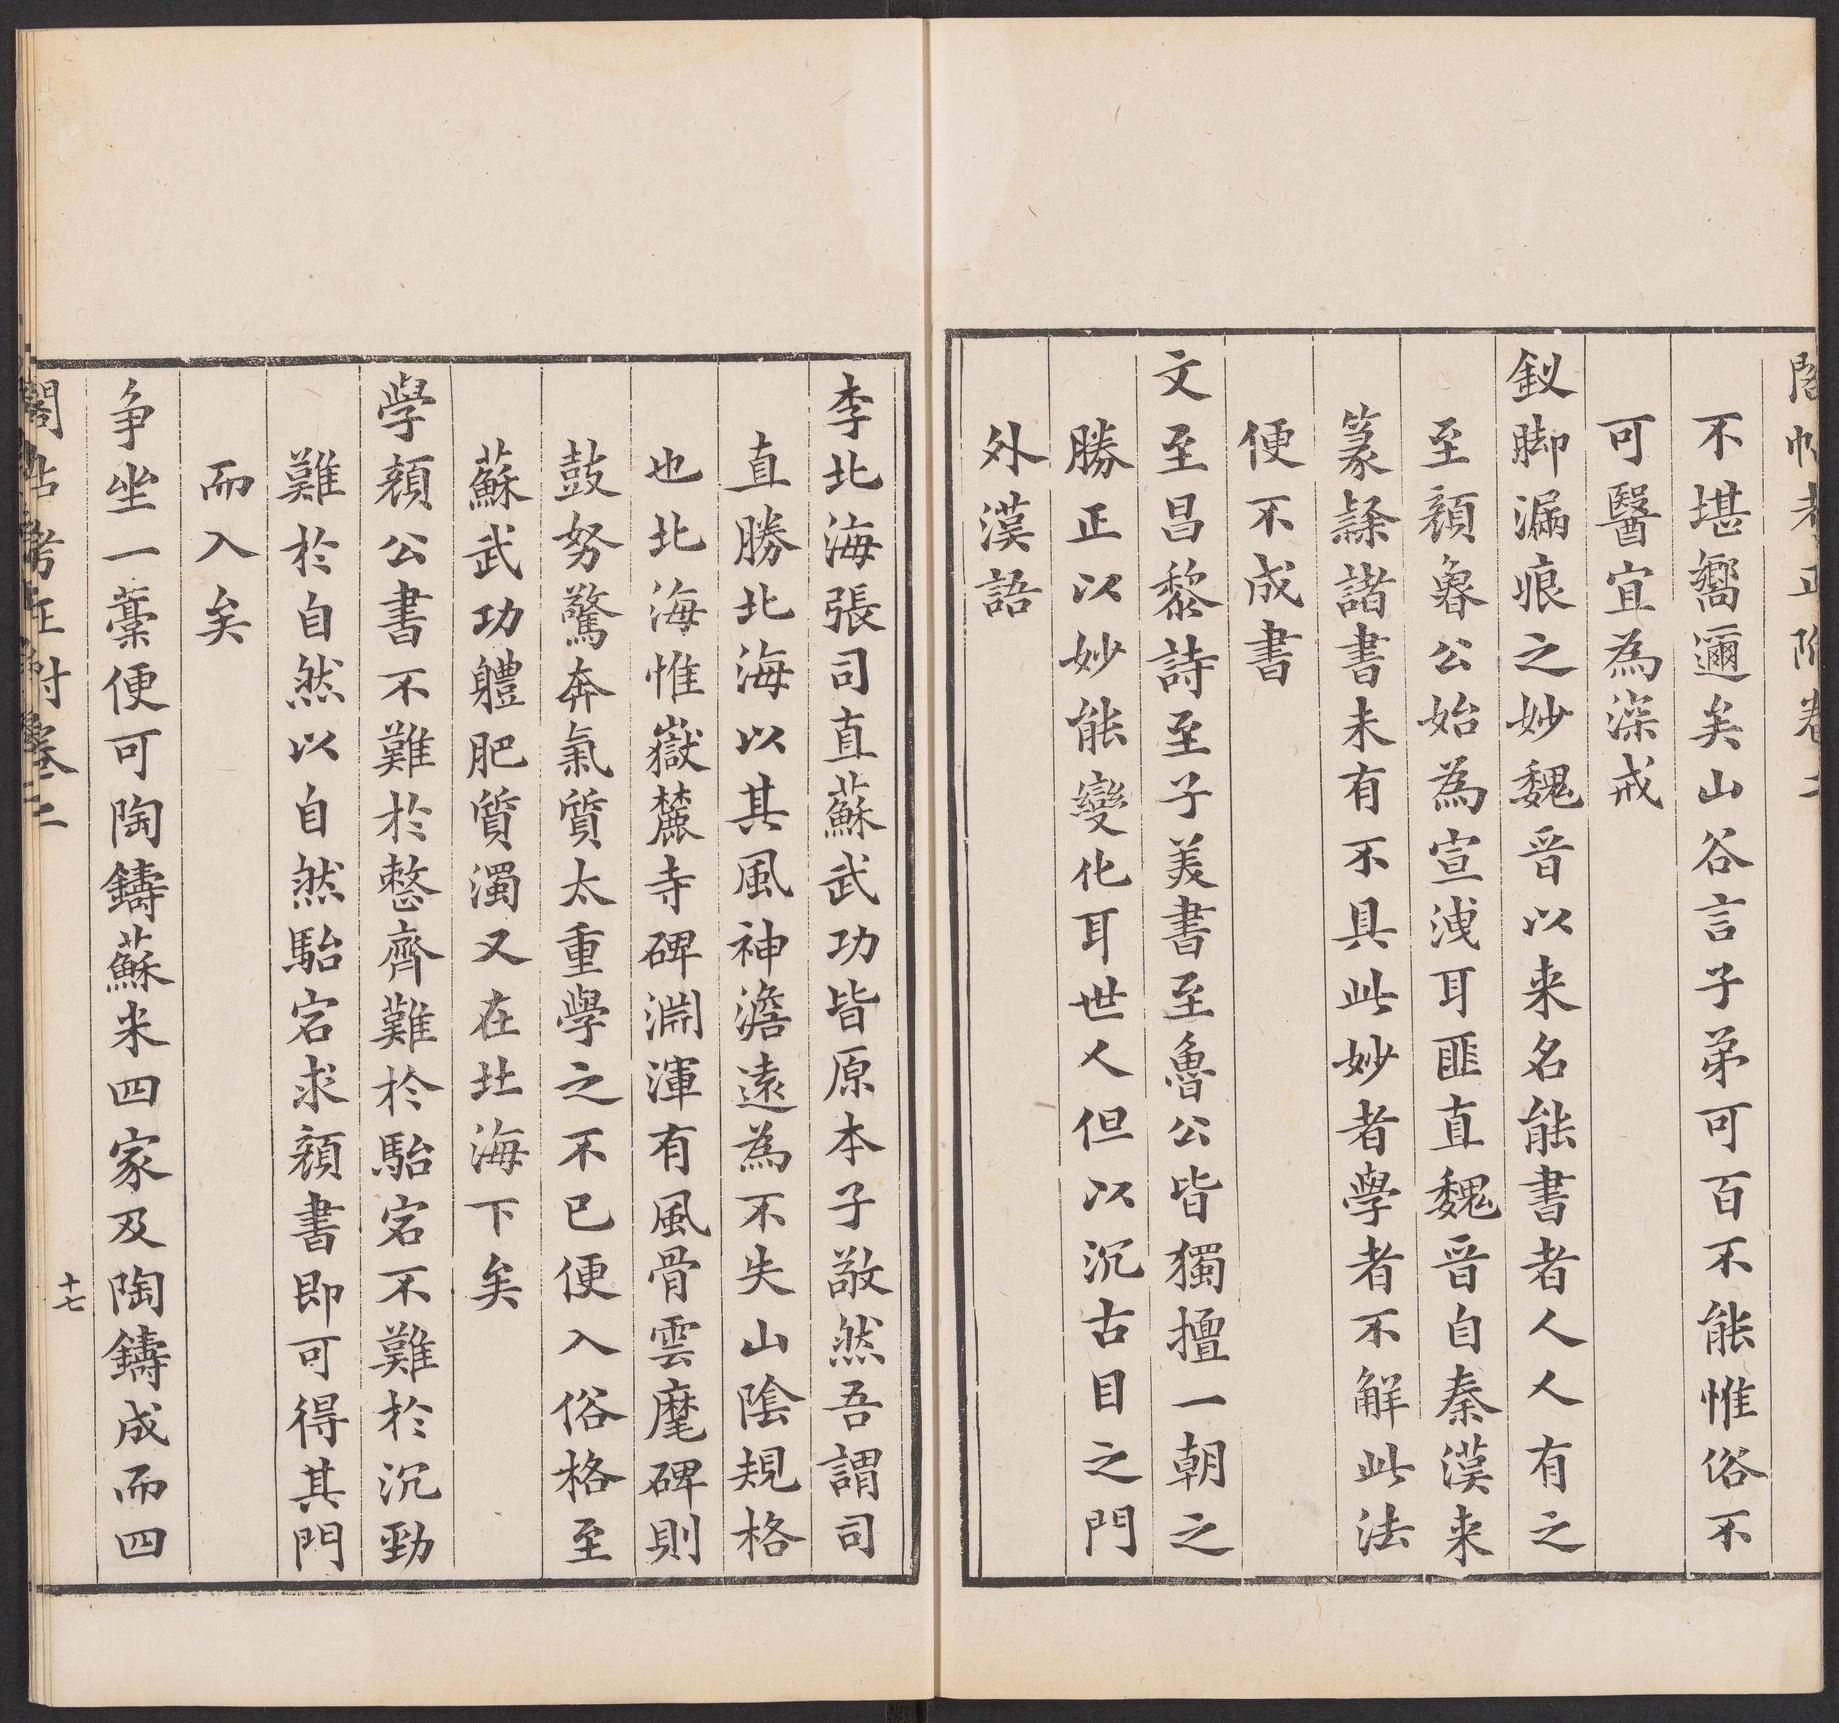 不堪嚮邇矣山谷言子弟可百不能惟俗不
可醫宜為深戒
釵脚漏痕之妙魏晉以来名能書者人人有之
至顔魯公始為宣洩耳匪直魏晉自秦漢来
篆隸諸書未有不具此妙者學者不解此法
便不成書
文至昌黎詩至子美書至魯公皆獨擅一朝之
勝正以妙能變化耳世人但以沉古目之門
外漢語
李北海張司直蘇武功皆原本子敬然吾謂司
直勝北海以其風神澹遠為不失山陰規格
也北海惟嶽麓寺碑淵渾有風骨雲麾碑則
鼓努驚奔氣質太重學之不已便入俗格至
蘇武功體肥質濁又在北海下矣
學顔公書不難於整齊難於駘宕不難於沉勁
難於自然以自然駘宕求顔書即可得其門
而入矣
争坐一藁便可陶鑄蘇米四家及陶鑄成而四
十七